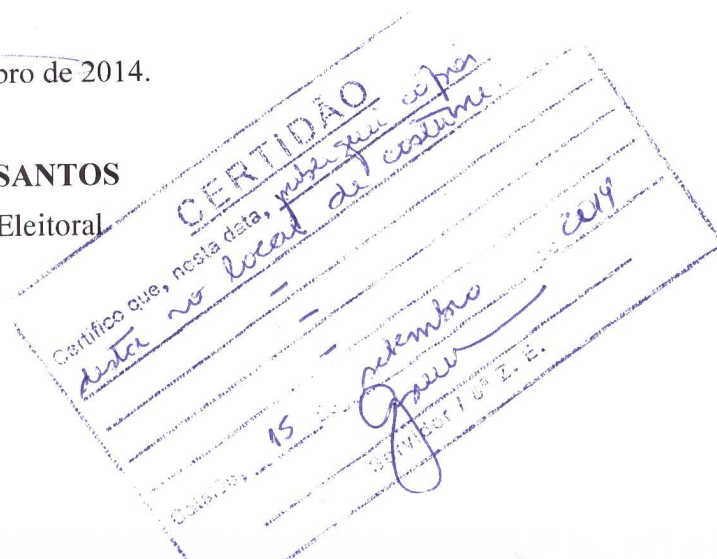 bro de 2014.
SANTOS
Eleitoral
CERTIDÃO
Certifico que, nesta data, publiquei cópia
desta no local de costume.
15 de setembro de 2014
Servidor / 8ª Z. E.